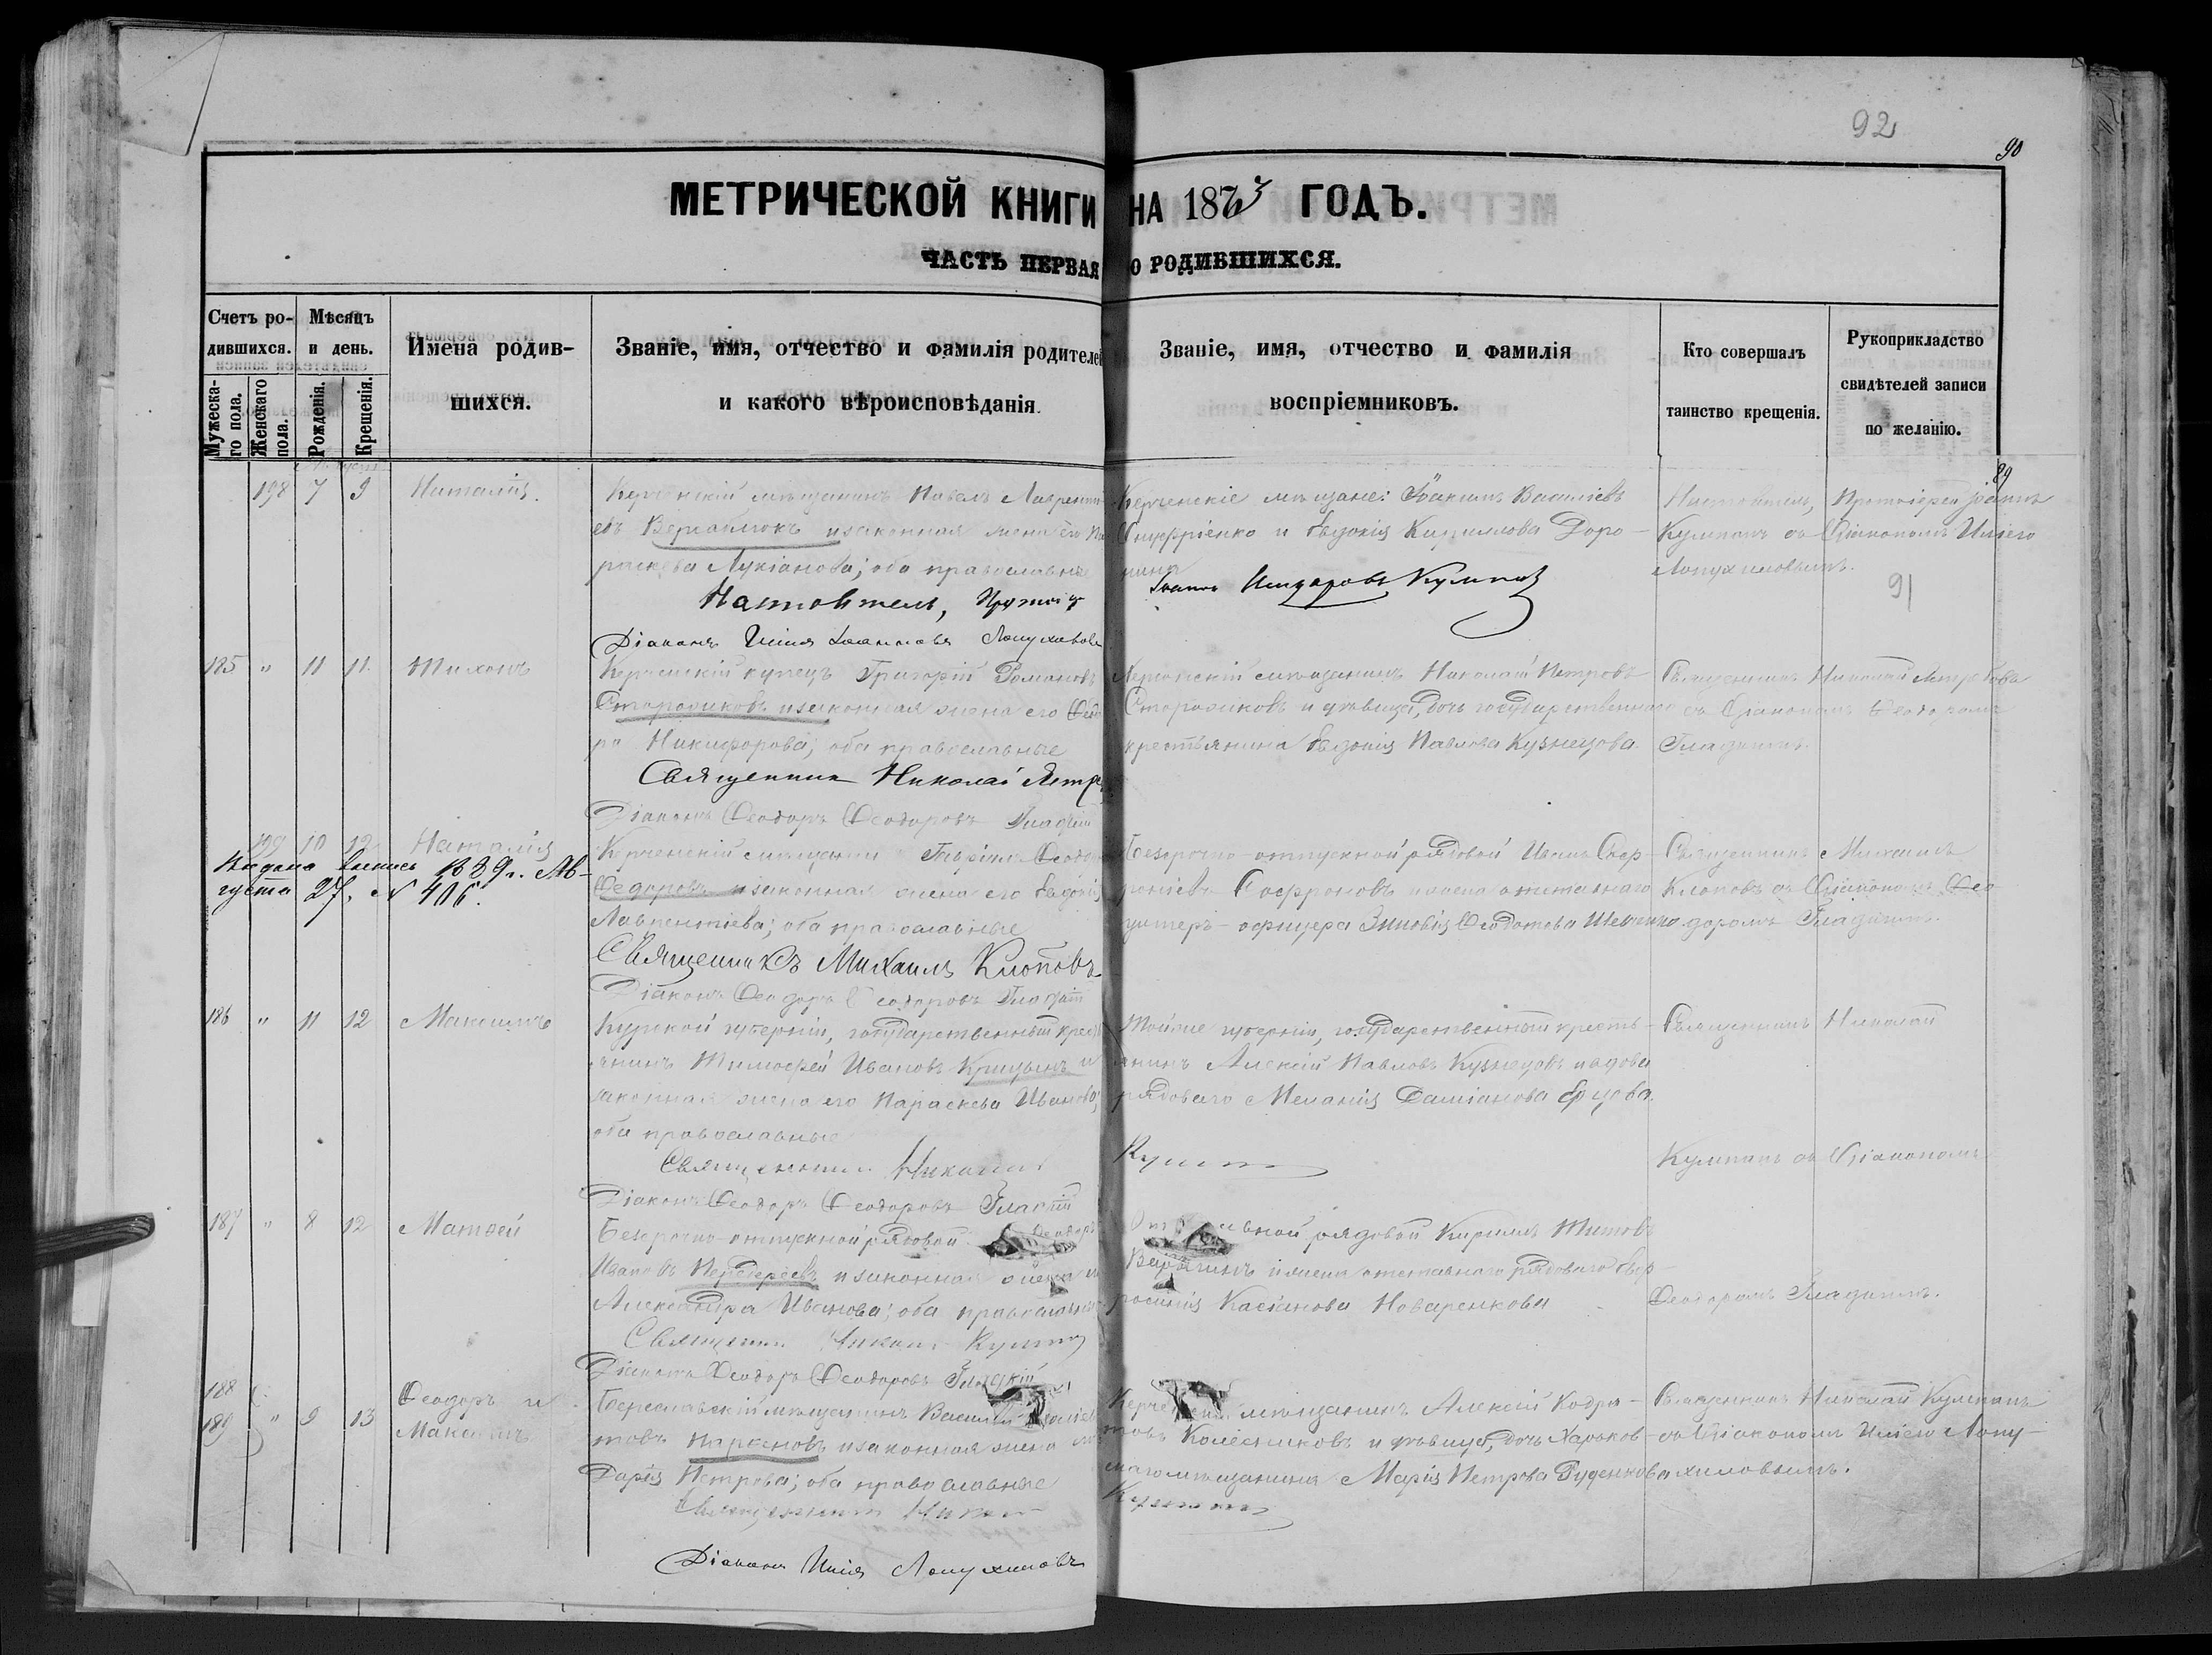 92
90
МЕТРИЧЕСКОЙ КНИГИ НА 1873 ГОДЪ.
ЧАСТЬ ПЕРВАЯ О РОДИВШИХСЯ.
Счетъ ро-
дившихся.
Мужеска-
го пола.
Женскаго
пола.
Мѣсяцъ
и день.
Рожденія.
Крещенія.
Имена родив-
шихся.
Званіе, имя, отчество и фамилія родителей
и какого вѣроисповѣданія.
Званіе, имя, отчество и фамилія
воспріемниковъ.
Кто совершалъ
таинство крещенія.
Рукоприкладство
свидѣтелей записи
по желанію.
89
198 7 9 Наталія.
Керченскій мѣщанинъ Павелъ Лаврентi-
евъ и законная жена его Па-
раскева Лукіанова; оба православные
Настоятель,
Діаконъ Илія Іоанновъ Лопухиновъ
Керченскіе мѣщане: Іоакимъ Василіевъ
Онуфріенко и Евдокія Кириллова Доро-
нина
Іоаннъ Кулипан
Настоятель, Протоіерей Іоаннъ
съ Діакономъ Иліею
Лопухиновымъ.
91
185 " 11 11. Тихонъ
Керченскій купецъ Григорій Романовъ
Сторожиковъ и законная жена его Ѳедо
ра Никифорова; оба православные
Священникъ Николай
Діаконъ Ѳеодоръ Ѳеодоровъ Гладкій
Керченскій мѣщанинъ Николай Петровъ
Сторожиковъ и дѣвица, дочь государственнаго
крестьянина Евдокія Павлова Кузнецова.
Священникъ Николай
съ Діакономъ Ѳеодоромъ
Гладкимъ.
199 10 12 Наталія
Выдана выпись 1889 г. Ав-
густа 27, N 406.
Керченскій мѣщанинъ Гавріилъ Ѳеодо
Ѳедоровъ и законная жена его Евдокія
Лаврентіева; оба православные
Священникъ Михаилъ Клоповъ
Діаконъ Ѳеодоръ Ѳеодоровъ Гладкій
Безсрочно-отпускной рядовой Иванъ Софр-
роніевъ Софроновъ и жена отставнаго
унтеръ-офицера Зиновія Ѳеодотова Шевченко
Священникъ Михаилъ
Клоповъ съ Діакономъ Ѳео-
доромъ Гладкимъ.
186 " 11 12 Максимъ
Курской губерніи, государственный крест
янинъ Тимофей Ивановъ Крицынъ и
законная жена его Параскева Иванова;
оба православные
Священникъ Николай
Діаконъ Ѳеодоръ Ѳеодоровъ Гладкій
Тойже губерніи, государственный кресть-
янинъ Алексій Павловъ Кузнецовъ и вдова
рядоваго Меланія Даміанова
Священникъ Николай
съ Діакономъ
187 " 8 12 Матѳей
Безсрочно-отпускной рядовой Ѳеодоръ
Ивановъ и законная жена
Александра Иванова; оба православные
Священникъ Николай
Діаконъ Ѳеодоръ Ѳеодоровъ Гладкій
рядовой Кириллъ Титовъ
и жена отставнаго рядоваго Евф-
росинія Касіанова Новаренкова
Ѳеодоромъ Гладкимъ.
188
189 " 9 13 Ѳеодоръ и
Максимъ
Береславскій мѣщанинъ Василій
товъ Парѳеновъ и законная жена
Дарія Петрова; оба православные
Священникъ
Діаконъ Илія Лопухиновъ
мѣщанинъ Алексій Кодра-
товъ Колесниковъ и дѣвица, дочь Харьков-
скаго мѣщанина Марія Петрова Руденкова
Священникъ Николай
съ Діакономъ Иліею Лопу-
хиновымъ.